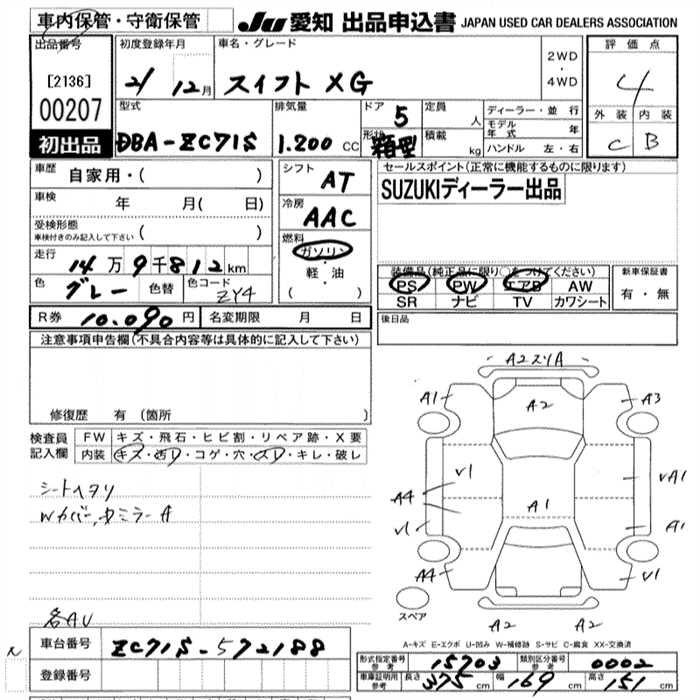 車内保管・守衛保管
JU 愛知 出品申込書 JAPAN USED CAR DEALERS ASSOCIATION
出品番号
[2136]
00207
初出品
初度登録年月
21 12月
車名・グレード
スイフト XG
2WD
・
4WD
評価点
4
外装 内装
C B
型式
DBA-ZC71S
排気量
1.200 CC
ドア 5
形状 箱型
定員 人
積載 kg
ディーラー・並行
モデル年式 年
ハンドル 左・右
車歴 自家用・( )
車検 年 月( 日)
受検形態
車検付きのみ記入して下さい ( )
走行
14万9千812km
色 グレー 色替 色コード ZY4
シフト AT
冷房 AAC
燃料
ガソリン
・
軽・油
( )
セールスポイント(正常に機能するものに限ります)
SUZUKIディーラー出品
装備品(純正品に限り○をつけてください)
PS PW エアB AW
SR ナビ TV カワシート
新車保証書
有・無
R券 10.090円 名変期限 月 日
後日品
注意事項申告欄(不具合内容等は具体的に記入して下さい)
修復歴 有(箇所 )
検査員記入欄
FW キズ・飛石・ヒビ割・リペア跡・X要
内装 キズ・汚レ・コゲ・穴・スレ・キレ・破レ
シートヘタリ
Wカバー,
ミラーA
各AU
A2スリA
A1 A2 A3
V1 VA1
A4 A1
V1 A1
A4 V1
A2 A2
スペア
A-キズ E-エクボ U-凹み W-補修跡 S-サビ C-腐食 XX-交換済
車台番号 ZC71S-572188
登録番号
型式指定番号 参考 15703 類別区分番号 参考 0002
車庫証明用 参考 長さ 375cm 幅 169cm 高さ 151cm
N